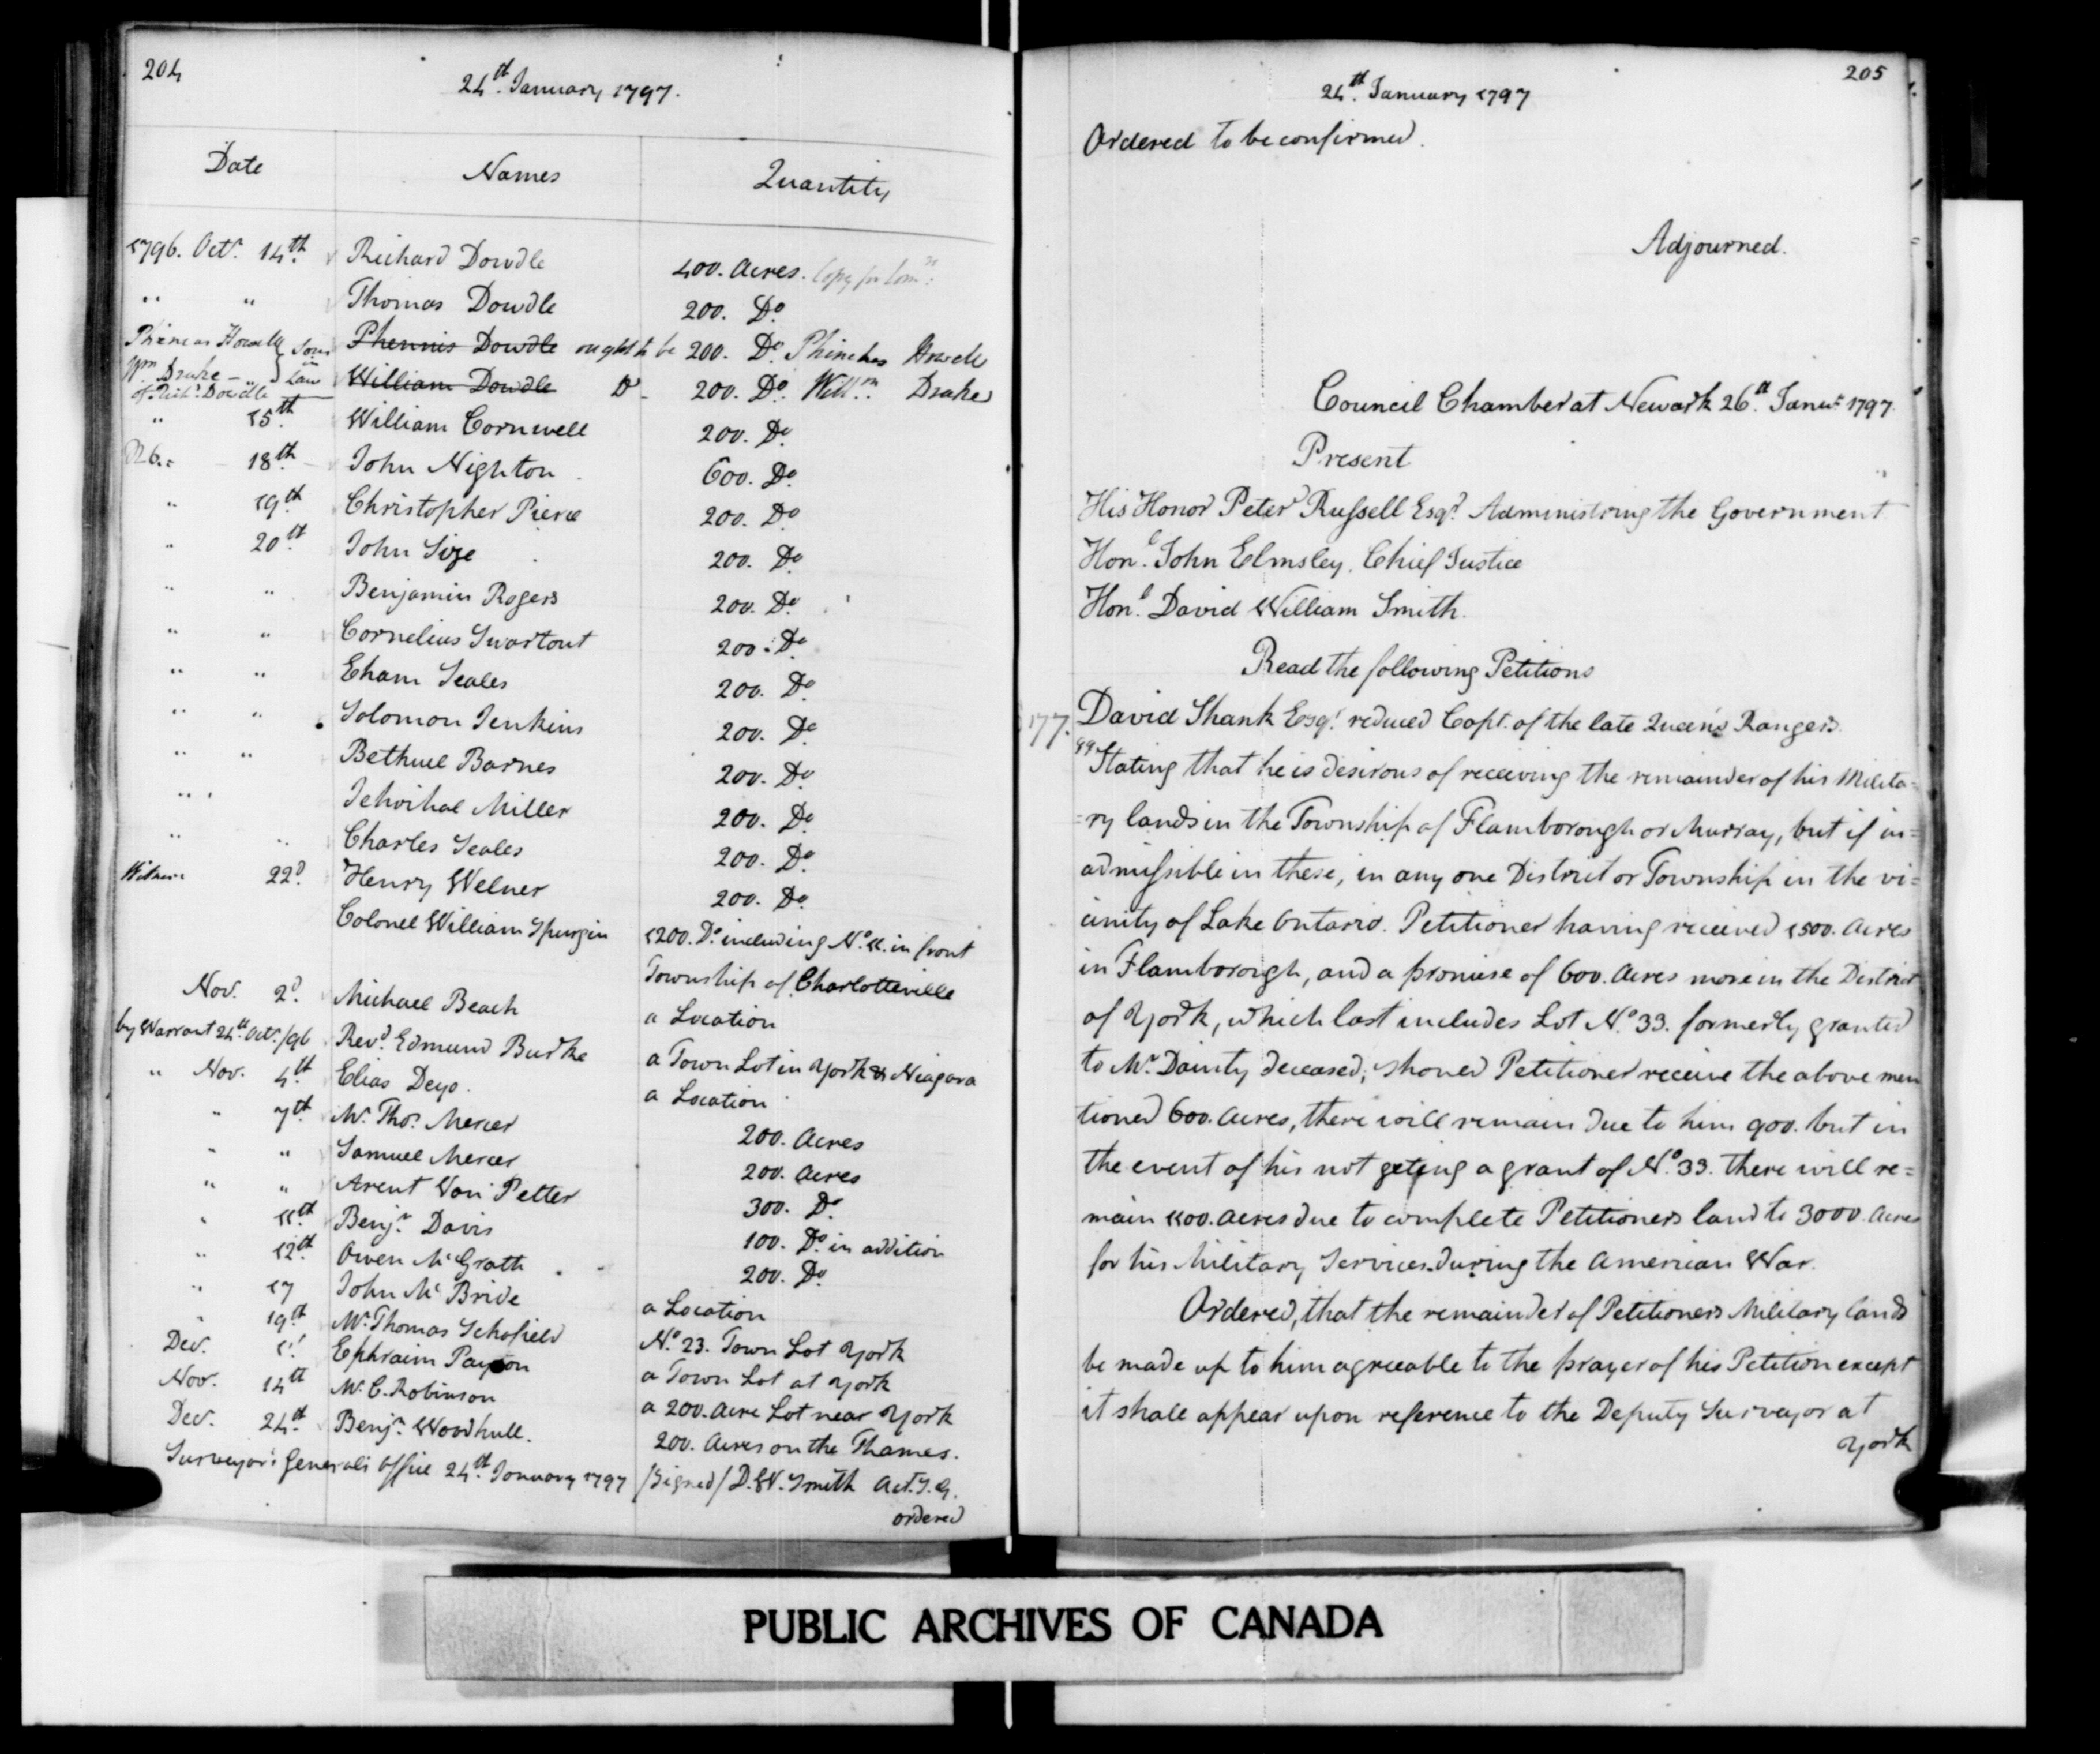 204
24th January 1797.
Date Names Quantity
1796. Octr. 14th. Richard Dowdle 400. Acres.
" " Thomas Dowdle 200. Do.
Phineas Howell } Sons Phennis Dowdle ought to be 200. Do. Phinehas Howell
Wm Drake - " } in Law William Dowdle Do - 200. Do. Willm. Drake
of Richd. Dowdle
" 15th. William Cornwell 200. Do.
18th. John Nighton 600. Do.
" 19th. Christopher Pierce 200. Do.
" 20th. John Size 200. Do.
" " Benjamin Rogers 200. Do.
" " Cornelius Swartout 200. Do.
" " Eham Scales 200. Do.
" " Solomon Jenkins 200. Do.
" " Bethuel Barnes 200. Do.
" " Miller 200. Do.
" " Charles Scales 200. Do.
22d. Henry Welner 200. Do.
Colonel William Spurgin 1200. Do. including No. 11. in front
Township of Charlotteville
Nov. 2d. Michael Beach a Location
by Warrant 24th. Octr./96 Revd. Edmund Burke a Town Lot in York & Niagara
" Nov. 4th. Elias Deyo. a Location
" 7th. Mr. Thos. Mercer 200. Acres
" " Samuel Mercer 200. Acres
" " Arent Von Petter 300. Do.
" 11th. Benjn. Davis 100. Do. in addition
" 12th. Owen McGrath 200. Do.
" 17 John McBride a Location
" 19th. Mr. Thomas Schofield No. 23. Town Lot York
Dec. 1t. Ephraim Payson a Town Lot at York
Nov. 14th Mr. C. Robinson a 200. Acre Lot near York
Dec. 24th. Benjn. Woodhull. 200. Acres on the Thames.
Surveyor Generals Office 24th. January 1797 /Signed/ D. W. Smith Act. S. G.
ordered
205
24th. January 1797
Ordered to be confirmed.
Adjourned.
Council Chamber at Newark 26th. Janur. 1797
Present
His Honor Peter Russell Esqr. Administring the Government
Honl. John Elmsley, Chief Justice
Honl. David William Smith.
Read the following Petitions
177. David Shank Esqr. reduced Capt. of the late Queen's Rangers.
Stating that he is desirous of receiving the remainder of his Milita=
=ry lands in the Township of Flamborough or Murray, but if in=
admissible in these, in any one District or Township in the vi=
cinity of Lake Ontario. Petitioner having received 1500. Acres
in Flamborough, and a promise of 600. Acres more in the District
of York, which last includes Lot No. 33. formerly granted
to Mr. Dainty deceased; should Petitioner receive the above men
tioned 600. Acres, there will remain due to him 900. but in
the event of his not geting a grant of No. 33. there will re=
main 1100. Acres due to complete Petitioners land to 3000. Acres
for his Military Services during the American War.
Ordered, that the remainder of Petitioners Military lands
be made up to him agreeable to the prayer of his Petition except
it shall appear upon reference to the Deputy Surveyor at
York
PUBLIC ARCHIVES OF CANADA